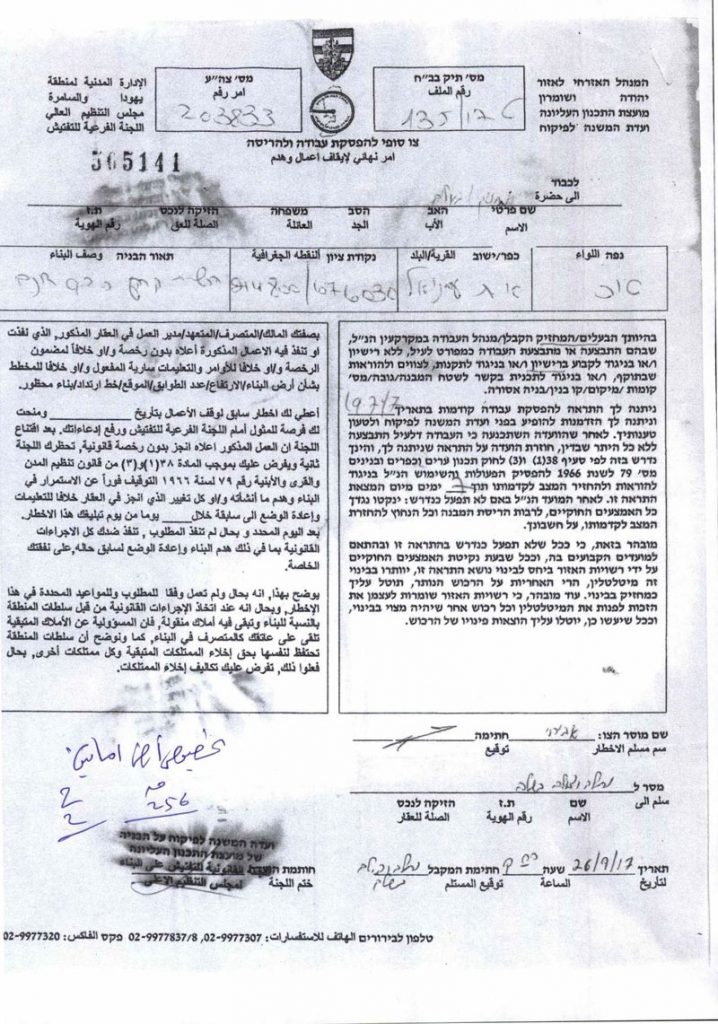 המנהל האזרחי לאזור
יהודה ושומרון
מועצת התכנון העליונה
ועדת המשנה לפיקוח
מס' תיק בב"ח
رقم الملف
ט 135/17
מס' צה"ע
امر رقم
203833
الإدارة المدنية لمنطقة
يهودا والسامرة
مجلس التنظيم العالي
اللجنة الفرعية للتفتيش
צו סופי להפסקת עבודה ולהריסה
امر نهائي لإيقاف اعمال وهدم
305141
לכבוד
الى حضرة
שם פרטי האב הסב משפחה הזיקה לנכס ת.ז
الاسم الأب الجد العائلة الصلة للعق رقم الهوية
נפה اللواء
כפר/ישוב القرية/البلد
נקודת ציון النقطه الجغرافية
תאור הבניה وصف البناء
בהיותך הבעלים/המחזיק הקבלן/מנהל העבודה במקרקעין הנ"ל,
שבהם התבצעה או מתבצעת העבודה כמפורט לעיל, ללא רישיון
ו/או בניגוד לקבוע ברישיון ו/או בניגוד לתקנות, לצווים ולהוראות
שבתוקף, ו/או בניגוד לתכנית בקשר לשטח המבנה/גובה/מס'
קומות /מיקום/קו בנין/בניה אסורה.
ניתנה לך התראה להפסקת עבודה קודמות בתאריך 19/7/17
וניתנה לך הזדמנות להופיע בפני ועדת המשנה לפיקוח ולטעון
טענותיך. לאחר שהוועדה השתכנעה כי העבודה דלעיל התבצעה
ללא כל היתר שבדין, חוזרת הועדה על התראה שניתנה לך, והינך
נדרש בזה לפי סעיף 38(1) ו(3) לחוק תכנון ערים כפרים ובנינים
מס' 79 לשנת 1966 להפסיק הפעולות והשימוש הנ"ל בניגוד
להוראות ולהחזיר המצב לקדמותו תוך 7 ימים מיום המצאת
התראה זו. לאחר המועד הנ"ל באם לא תפעל כנדרש: ינקטו נגדך
כל האמצעים החוקיים, לרבות הריסת המבנה וכל הנחוץ להחזרת
המצב לקדמותו, על חשבונך.
מובהר בזאת, כי ככל שלא תפעל כנדרש בהתראה זו ובהתאם
למועדים הקבועים בה, וככל שבעת נקיטת האמצעים החוקיים
על ידי רשויות האזור ביחס לבינוי נושא התראה זו, יוותרו בבינוי
זה מיטלטלין, הרי האחריות על הרכוש הנותר, תוטל עליך
כמחזיק בבינוי. עוד מובהר, כי רשויות האזור שומרות לעצמן את
הזכות לפנות את המיטלטלין וכל רכוש אחר שיהיה מצוי בבינוי,
וככל שיעשו כן, יוטלו עליך הוצאות פינויו של הרכוש.
بصفتك المالك/المتصرف/المتعهد/مدير العمل في العقار المذكور, الذي نفذت
او تنفذ فيه الاعمال المذكورة أعلاه بدون رخصة و/او خلافاً لمضمون
الرخصة و/او خلافا للأوامر والتعليمات سارية المفعول و/او خلافا للمخطط
بشأن أرض البناء/الارتفاع/عدد الطوابق/الموقع/خط ارتداد/بناء محظور.
أعطي لك اخطار سابق لوقف الأعمال بتاريخ______ ومنحت
لك فرصة للمثول أمام اللجنة الفرعية للتفتيش ورفع إدعاءاتك. بعد اقتناع
اللجنة ان العمل المذكور اعلاه انجز بدون رخصة قانونية, تحظرك اللجنة
ثانية ويفرض عليك بموجب المادة ٣٨(١)و(٣) من قانون تنظيم المدن
والقرى والأبنية رقم ٧٩ لسنة ١٩٦٦ التوقيف فوراً عن الاستمرار في
البناء وهدم ما أنشأته و/او كل تغيير الذي انجز في العقار خلافا للتعليمات
وإعادة الوضع الى سابقة خلال____ يوما من يوم تبليغك هذا الاخطار.
بعد اليوم المحدد و بحال لم تنفذ المطلوب , تنفذ ضدك كل الاجراءات
القانونية بما في ذلك هدم البناء وإعادة الوضع لسابق حاله, على نفقتك
الخاصة.
يوضح بهذا, انه بحال ولم تعمل وفقا للمطلوب وللمواعيد المحددة في هذا
الإخطار, وبحال انه عند اتخاذ الإجراءات القانونية من قبل سلطات المنطقة
بالنسبة للبناء وتبقى فيه أملاك منقولة, فان المسؤولية عن الأملاك المتبقية
تلقى على عاتقك كالمتصرف في البناء, كما ونوضح أن سلطات المنطقة
تحتفظ لنفسها بحق إخلاء الممتلكات المتبقية وكل ممتلكات أخرى, بحال
فعلوا ذلك, تفرض عليك تكاليف إخلاء الممتلكات.
שם מוסר הצו: חתימה
سم مسلم الاخطار توقيع
מסר ל
سلم الى
שם ת.ז הזיקה לנכס
الاسم رقم الهوية الصلة للعقار
256
ועדת המשנה לפיקוח על הבניה
של מועצת התכנון העליונה
חותמת הועדה
ختم اللجنة
لمجلس التنظيم الاعلى
תאריך 26/9/17 שעה חתימת המקבל
لتاريخ الساعة توقيع المستلم
טלפון לבירורים الهاتف للاستفسارات: 02-9977307, 02-9977837/8 פקס الفاكس: 02-9977320